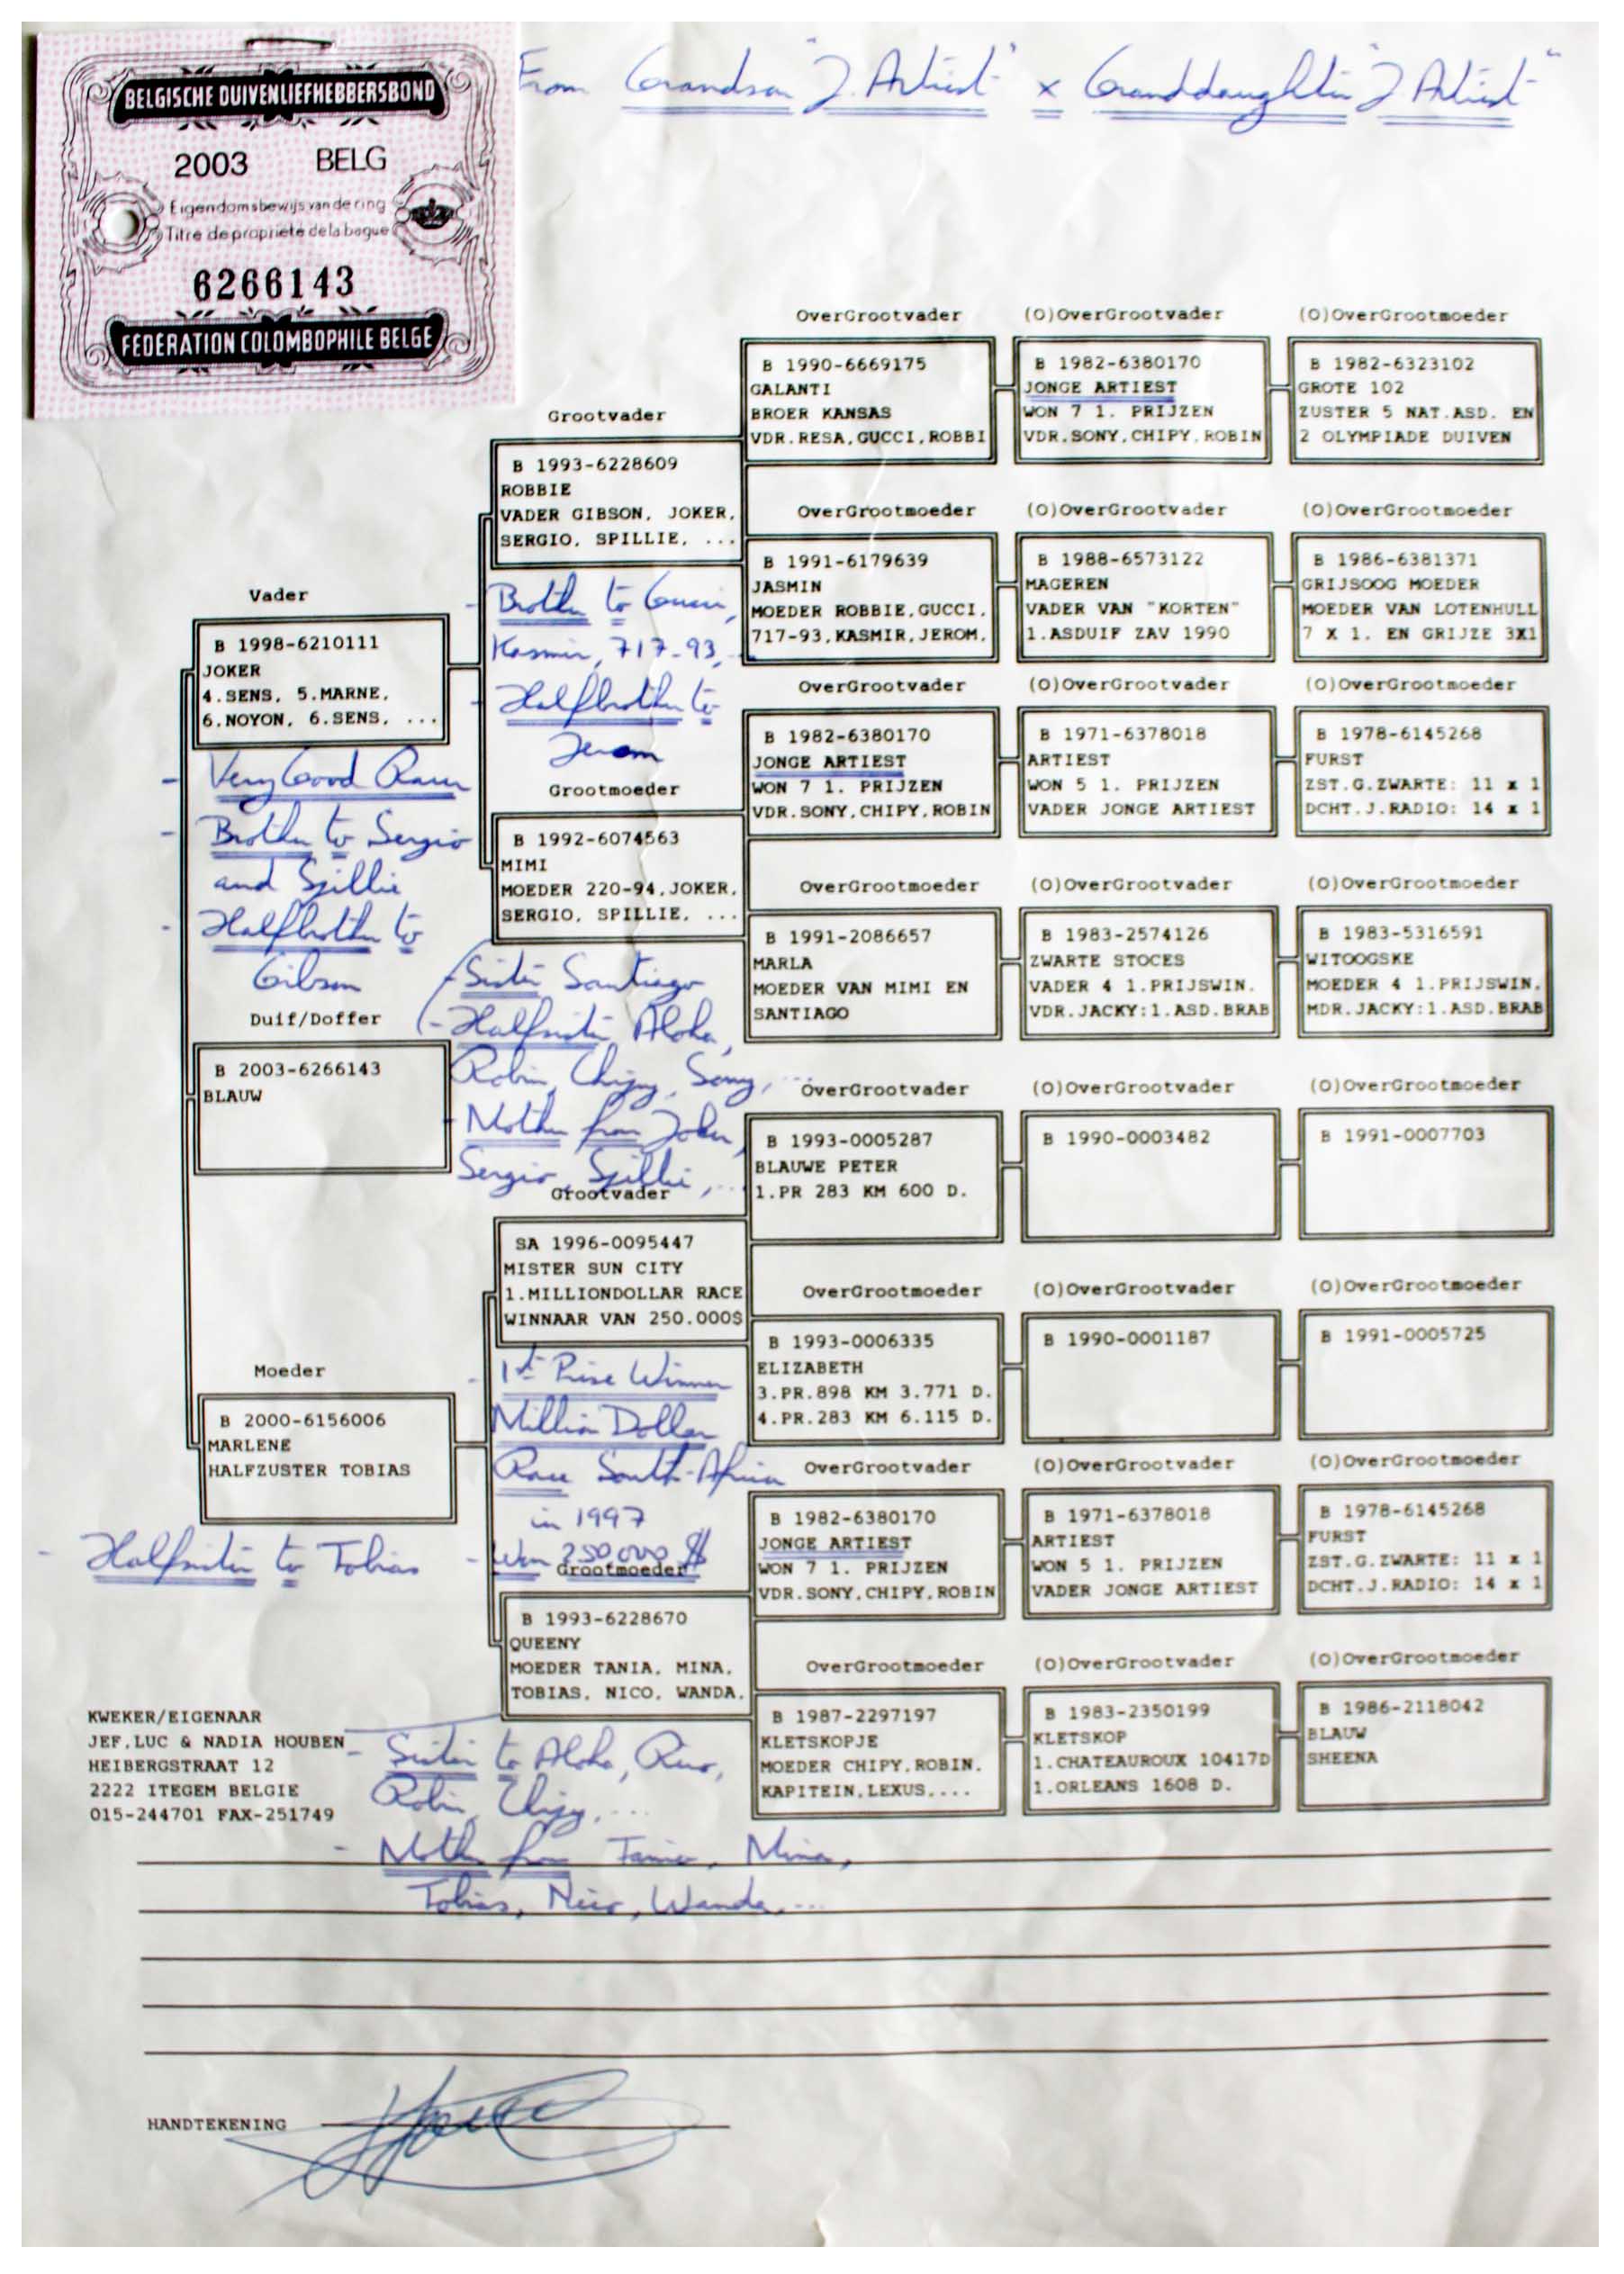 BELGISCHE DUIVENLIEFHEBBERSBOND
2003 BELG
Eigendomsbewijs van de ring
Titre de propriété de la bague
6266143
FEDERATION COLOMBOPHILE BELGE
From Grandson "J. Artiest" x Granddaughter "J Artiest"
OverGrootvader
B 1990-6669175
GALANTI
BROER KANSAS
VDR.RESA,GUCCI,ROBBI
(O)OverGrootvader
B 1982-6380170
JONGE ARTIEST
WON 7 1. PRIJZEN
VDR.SONY,CHIPY,ROBIN
(O)OverGrootmoeder
B 1982-6323102
GROTE 102
ZUSTER 5 NAT.ASD. EN
2 OLYMPIADE DUIVEN
Grootvader
B 1993-6228609
ROBBIE
VADER GIBSON, JOKER,
SERGIO, SPILLIE, ...
- Brother to Gucci,
Kasmir, 717-93,
- Halfbrother to
Jerom
OverGrootmoeder
B 1991-6179639
JASMIN
MOEDER ROBBIE,GUCCI,
717-93,KASMIR,JEROM,
(O)OverGrootvader
B 1988-6573122
MAGEREN
VADER VAN "KORTEN"
1.ASDUIF ZAV 1990
(O)OverGrootmoeder
B 1986-6381371
GRIJSOOG MOEDER
MOEDER VAN LOTENHULL
7 X 1. EN GRIJZE 3X1
Vader
B 1998-6210111
JOKER
4.SENS, 5.MARNE,
6.NOYON, 6.SENS, ...
- Very Good Racer
- Brother to Sergio
and Spillie
- Halfbrother to
Gibson
OverGrootvader
B 1982-6380170
JONGE ARTIEST
WON 7 1. PRIJZEN
VDR.SONY,CHIPY,ROBIN
(O)OverGrootvader
B 1971-6378018
ARTIEST
WON 5 1. PRIJZEN
VADER JONGE ARTIEST
(O)OverGrootmoeder
B 1978-6145268
FURST
ZST.G.ZWARTE: 11 x 1
DCHT.J.RADIO: 14 x 1
Grootmoeder
B 1992-6074563
MIMI
MOEDER 220-94,JOKER,
SERGIO, SPILLIE, ...
- Sister Santiago
- Halfsister Aloha,
Robin, Chipy, Sony, ...
- Mother from Joker,
Sergio, Spillie, ...
OverGrootmoeder
B 1991-2086657
MARLA
MOEDER VAN MIMI EN
SANTIAGO
(O)OverGrootvader
B 1983-2574126
ZWARTE STOCES
VADER 4 1.PRIJSWIN.
VDR.JACKY:1.ASD.BRAB
(O)OverGrootmoeder
B 1983-5316591
WITOOGSKE
MOEDER 4 1.PRIJSWIN.
MDR.JACKY:1.ASD.BRAB
Duif/Doffer
B 2003-6266143
BLAUW
OverGrootvader
B 1993-0005287
BLAUWE PETER
1.PR 283 KM 600 D.
(O)OverGrootvader
B 1990-0003482
(O)OverGrootmoeder
B 1991-0007703
Grootvader
SA 1996-0095447
MISTER SUN CITY
1.MILLIONDOLLAR RACE
WINNAAR VAN 250.000$
- 1st Prise Winner
Million Dollar
Race South-Africa
in 1997
- Won 250000 $
OverGrootmoeder
B 1993-0006335
ELIZABETH
3.PR.898 KM 3.771 D.
4.PR.283 KM 6.115 D.
(O)OverGrootvader
B 1990-0001187
(O)OverGrootmoeder
B 1991-0005725
Moeder
B 2000-6156006
MARLENE
HALFZUSTER TOBIAS
- Halfsister to Tobias
OverGrootvader
B 1982-6380170
JONGE ARTIEST
WON 7 1. PRIJZEN
VDR.SONY,CHIPY,ROBIN
(O)OverGrootvader
B 1971-6378018
ARTIEST
WON 5 1. PRIJZEN
VADER JONGE ARTIEST
(O)OverGrootmoeder
B 1978-6145268
FURST
ZST.G.ZWARTE: 11 x 1
DCHT.J.RADIO: 14 x 1
Grootmoeder
B 1993-6228670
QUEENY
MOEDER TANIA, MINA,
TOBIAS, NICO, WANDA,
- Sister to Aloha,
Robin, Chipy, ...
- Mother from Tania, Mina,
Tobias, Nico, Wanda, ...
OverGrootmoeder
B 1987-2297197
KLETSKOPJE
MOEDER CHIPY,ROBIN,
KAPITEIN,LEXUS,...
(O)OverGrootvader
B 1983-2350199
KLETSKOP
1.CHATEAUROUX 10417D
1.ORLEANS 1608 D.
(O)OverGrootmoeder
B 1986-2118042
BLAUW
SHEENA
KWEKER/EIGENAAR
JEF,LUC & NADIA HOUBEN
HEIBERGSTRAAT 12
2222 ITEGEM BELGIE
015-244701 FAX-251749
HANDTEKENING